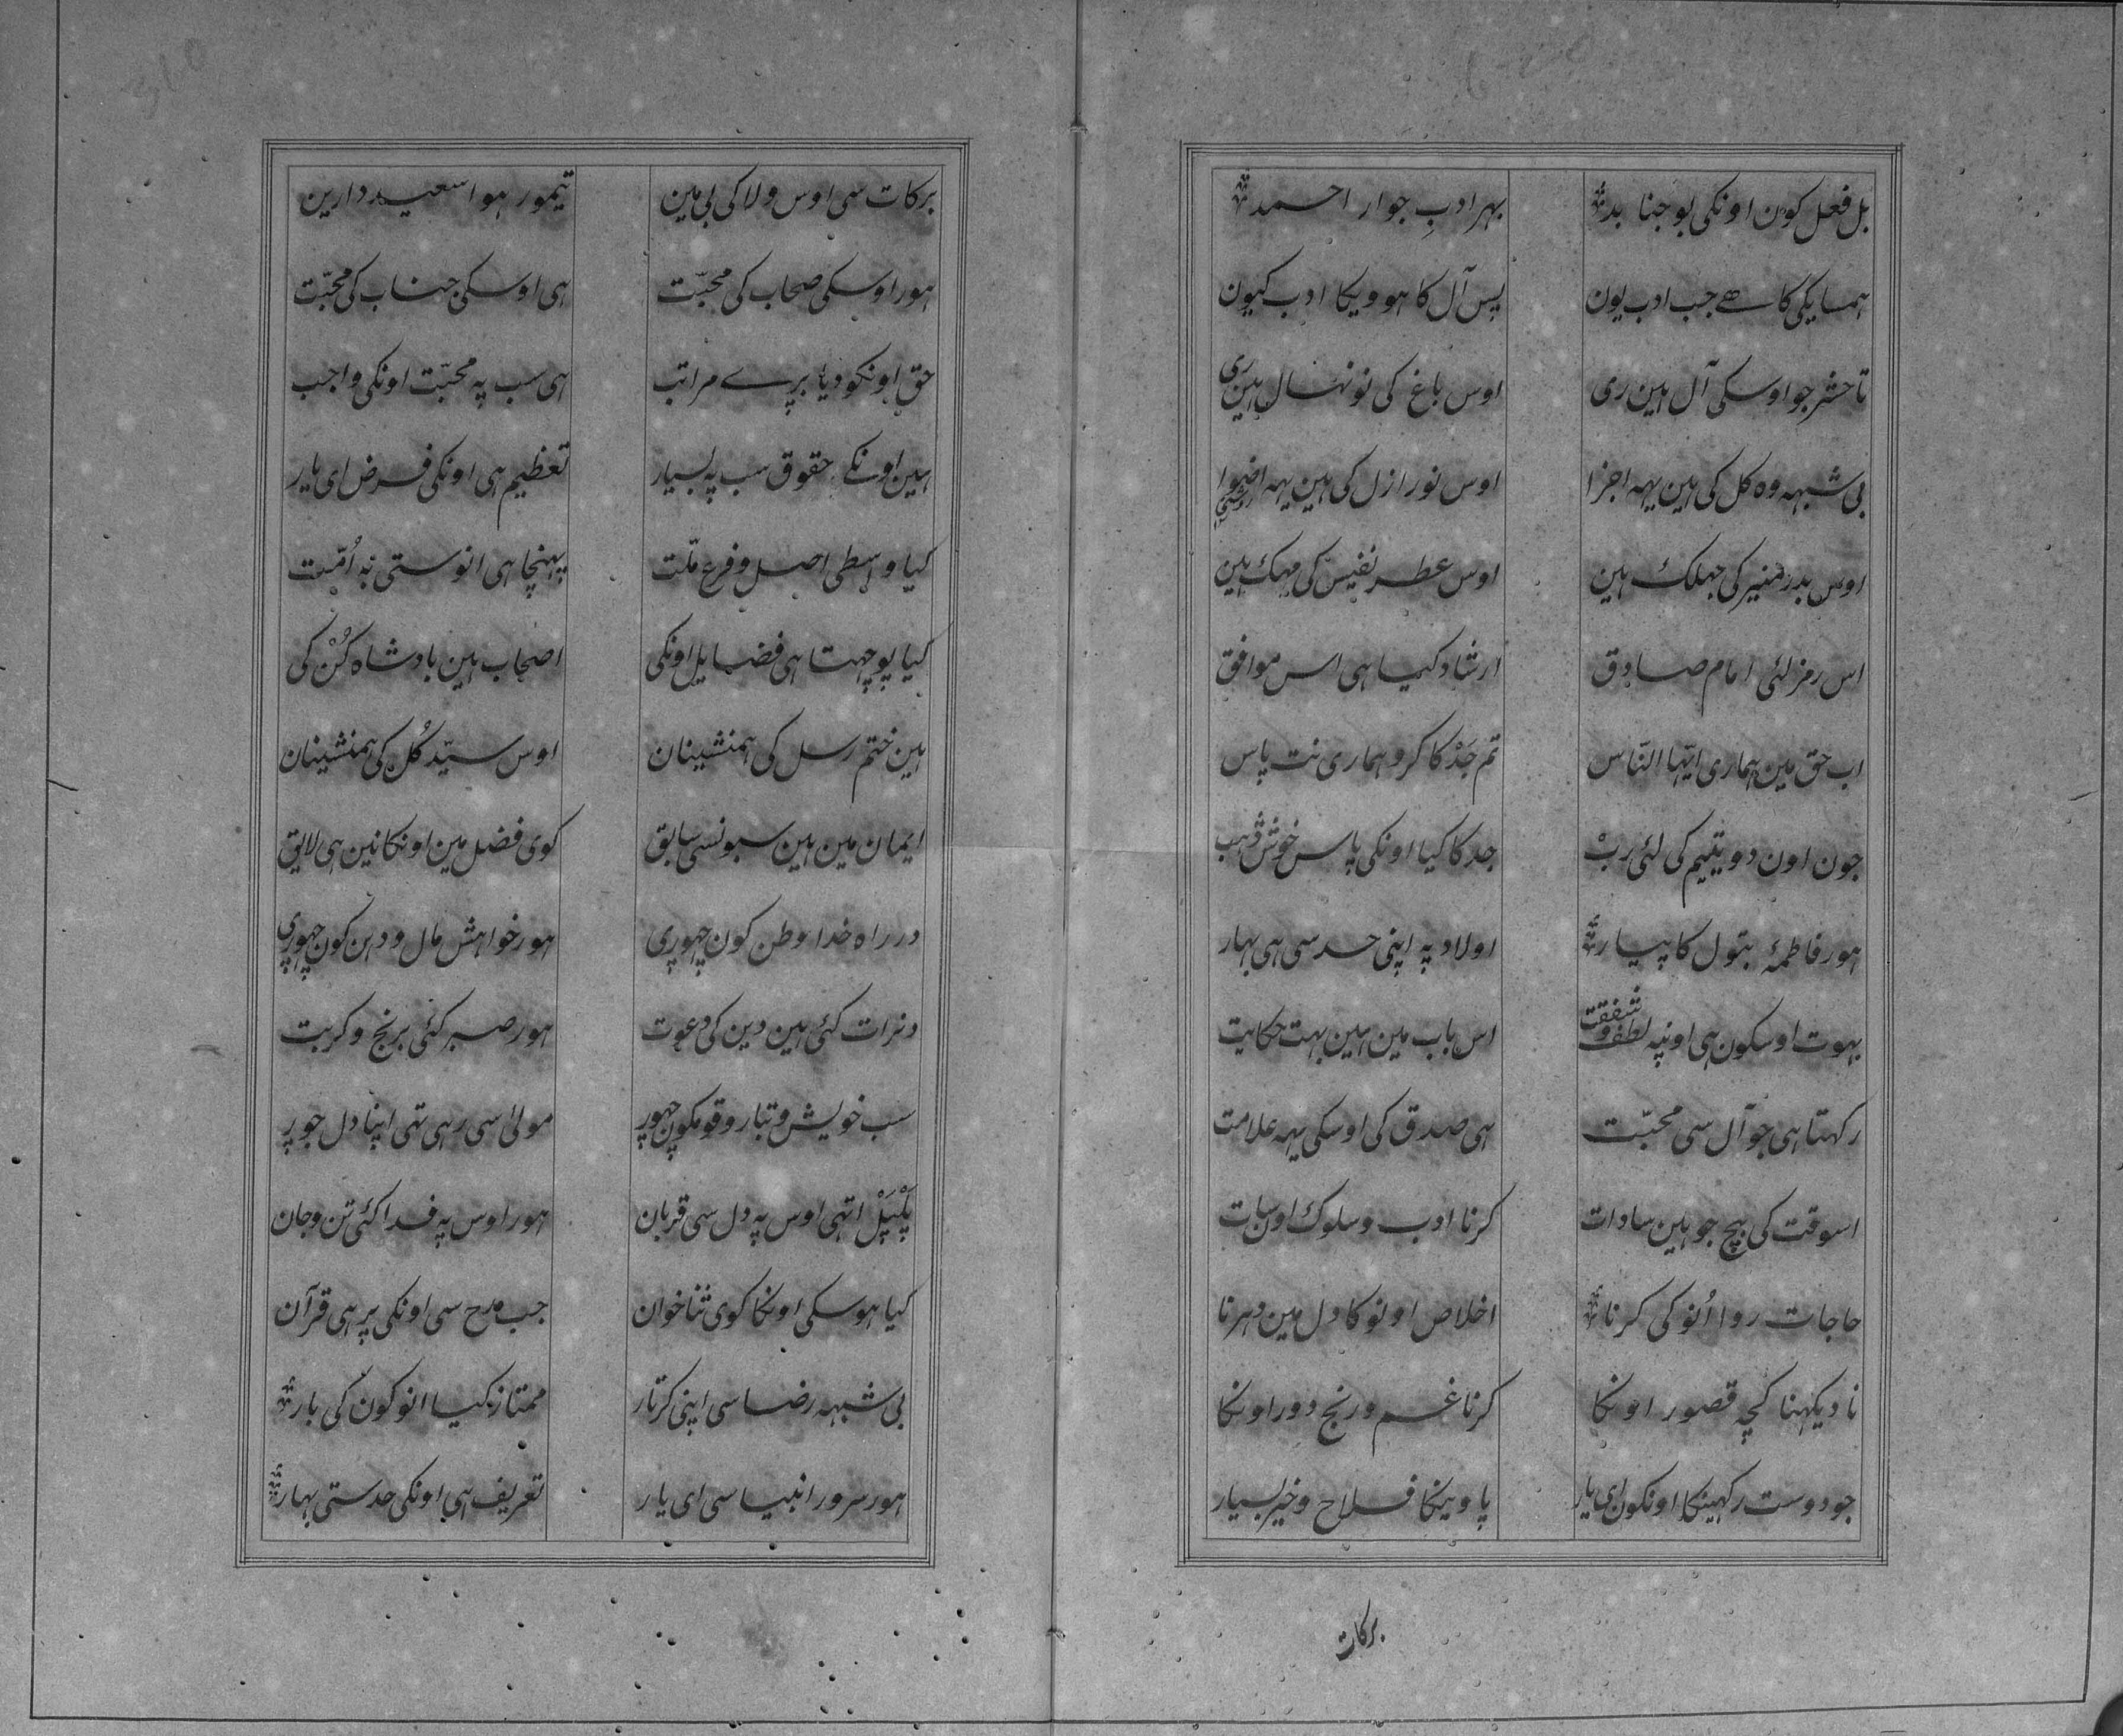 بل فعل کون اونکی بوجنا بد بہر ادبِ جوار احمد
ہمسایگی کا ہے جب ادب یون پس آل کا ہوویکا ادب کیون
تا حشر جو اوسکی آل ہین ری اوس باغ کی نونہال ہین ری
بی شبہہ وہ کل کی ہین یہہ اجزا اوس نور ازل کی ہین یہہ اضوا
اوس بدر منیر کی جہلک ہین اوس عطر نفیس کی مہک ہین
اس رمز لئی امام صادق ارشاد کیا ہی اس موافق
اب حق مین ہماری ایّہا النّاس تم جَدْ کا کرو ہماری نت پاس
جون اون دو یتیم کی لئی ربْ جد کا کیا اونکی پاس خوش
ہور فاطمۂ بتول کا پیار اولاد پہ اپنی حد سی ہی بہار
بہوت اوسکون ہی اونپہ لطف و شفقت اس باب مین ہین بہت حکایت
رکہتا ہی جو آل سی محبّت ہی صدق کی اوسکی یہہ علامت
اسوقت کی بیچ جو ہین سادات کرنا ادب و سلوک اون سات
حاجات روا اُنو کی کرنا اخلاص اونو کا دل مین دہرنا
نا دیکہنا کچہ قصور اونکا کرنا غم و رنج دور اونکا
جو دوست رکہینکا اونکون ای یار پاوینکا فلاح و خیر بسیار
برکات
برکات سی اوس ولا کی بی مین تیمور ہوا سعید دارین
ہور اوسکی صحاب کی محبّت ہی اوسکی جناب کی محبّت
حق اونکو دیا برے مراتب ہی سب پہ محبّت اونکی واجب
ہین اونکے حقوق سب پہ بسیار تعظیم ہی اونکی فرض ای یار
کیا واسطی اصل و فرع ملّت پہنچا ہی انوستی بہ اُمّت
کیا پوچہتا ہی فضایل اونکی اصحاب ہین بادشاہ کُنْ کی
ہین ختم رسل کی ہمنشینان اوس سیّد کُل کی ہمنشینان
ایمان مین ہین سبونسی سابق کوی فضل مین اونکا نین ہی لایق
در راہ خدا وطن کون چہوری ہور خواہش مال و دہن کون چہوری
دنرات کئی ہین دین کی دعوت ہور صبر کئی برنج و کربت
سب خویش و تبار و قومکون چہور مولیٰ سی رہی تہی اپنا دل جور
پَلْپَلْ اتہی اوس پہ دل سی قربان ہور اوس پہ فدا کئی تن و جان
کیا ہوسکی اونکا کوی ثناخوان جب مدح سی اونکی پر ہی قرآن
بی شبہہ رضا سی اپنی کرتار ممتاز کیا انوکون کی بار
ہور سرور انبیا سی ای یار تعریف ہی اونکی حد ستی بہار